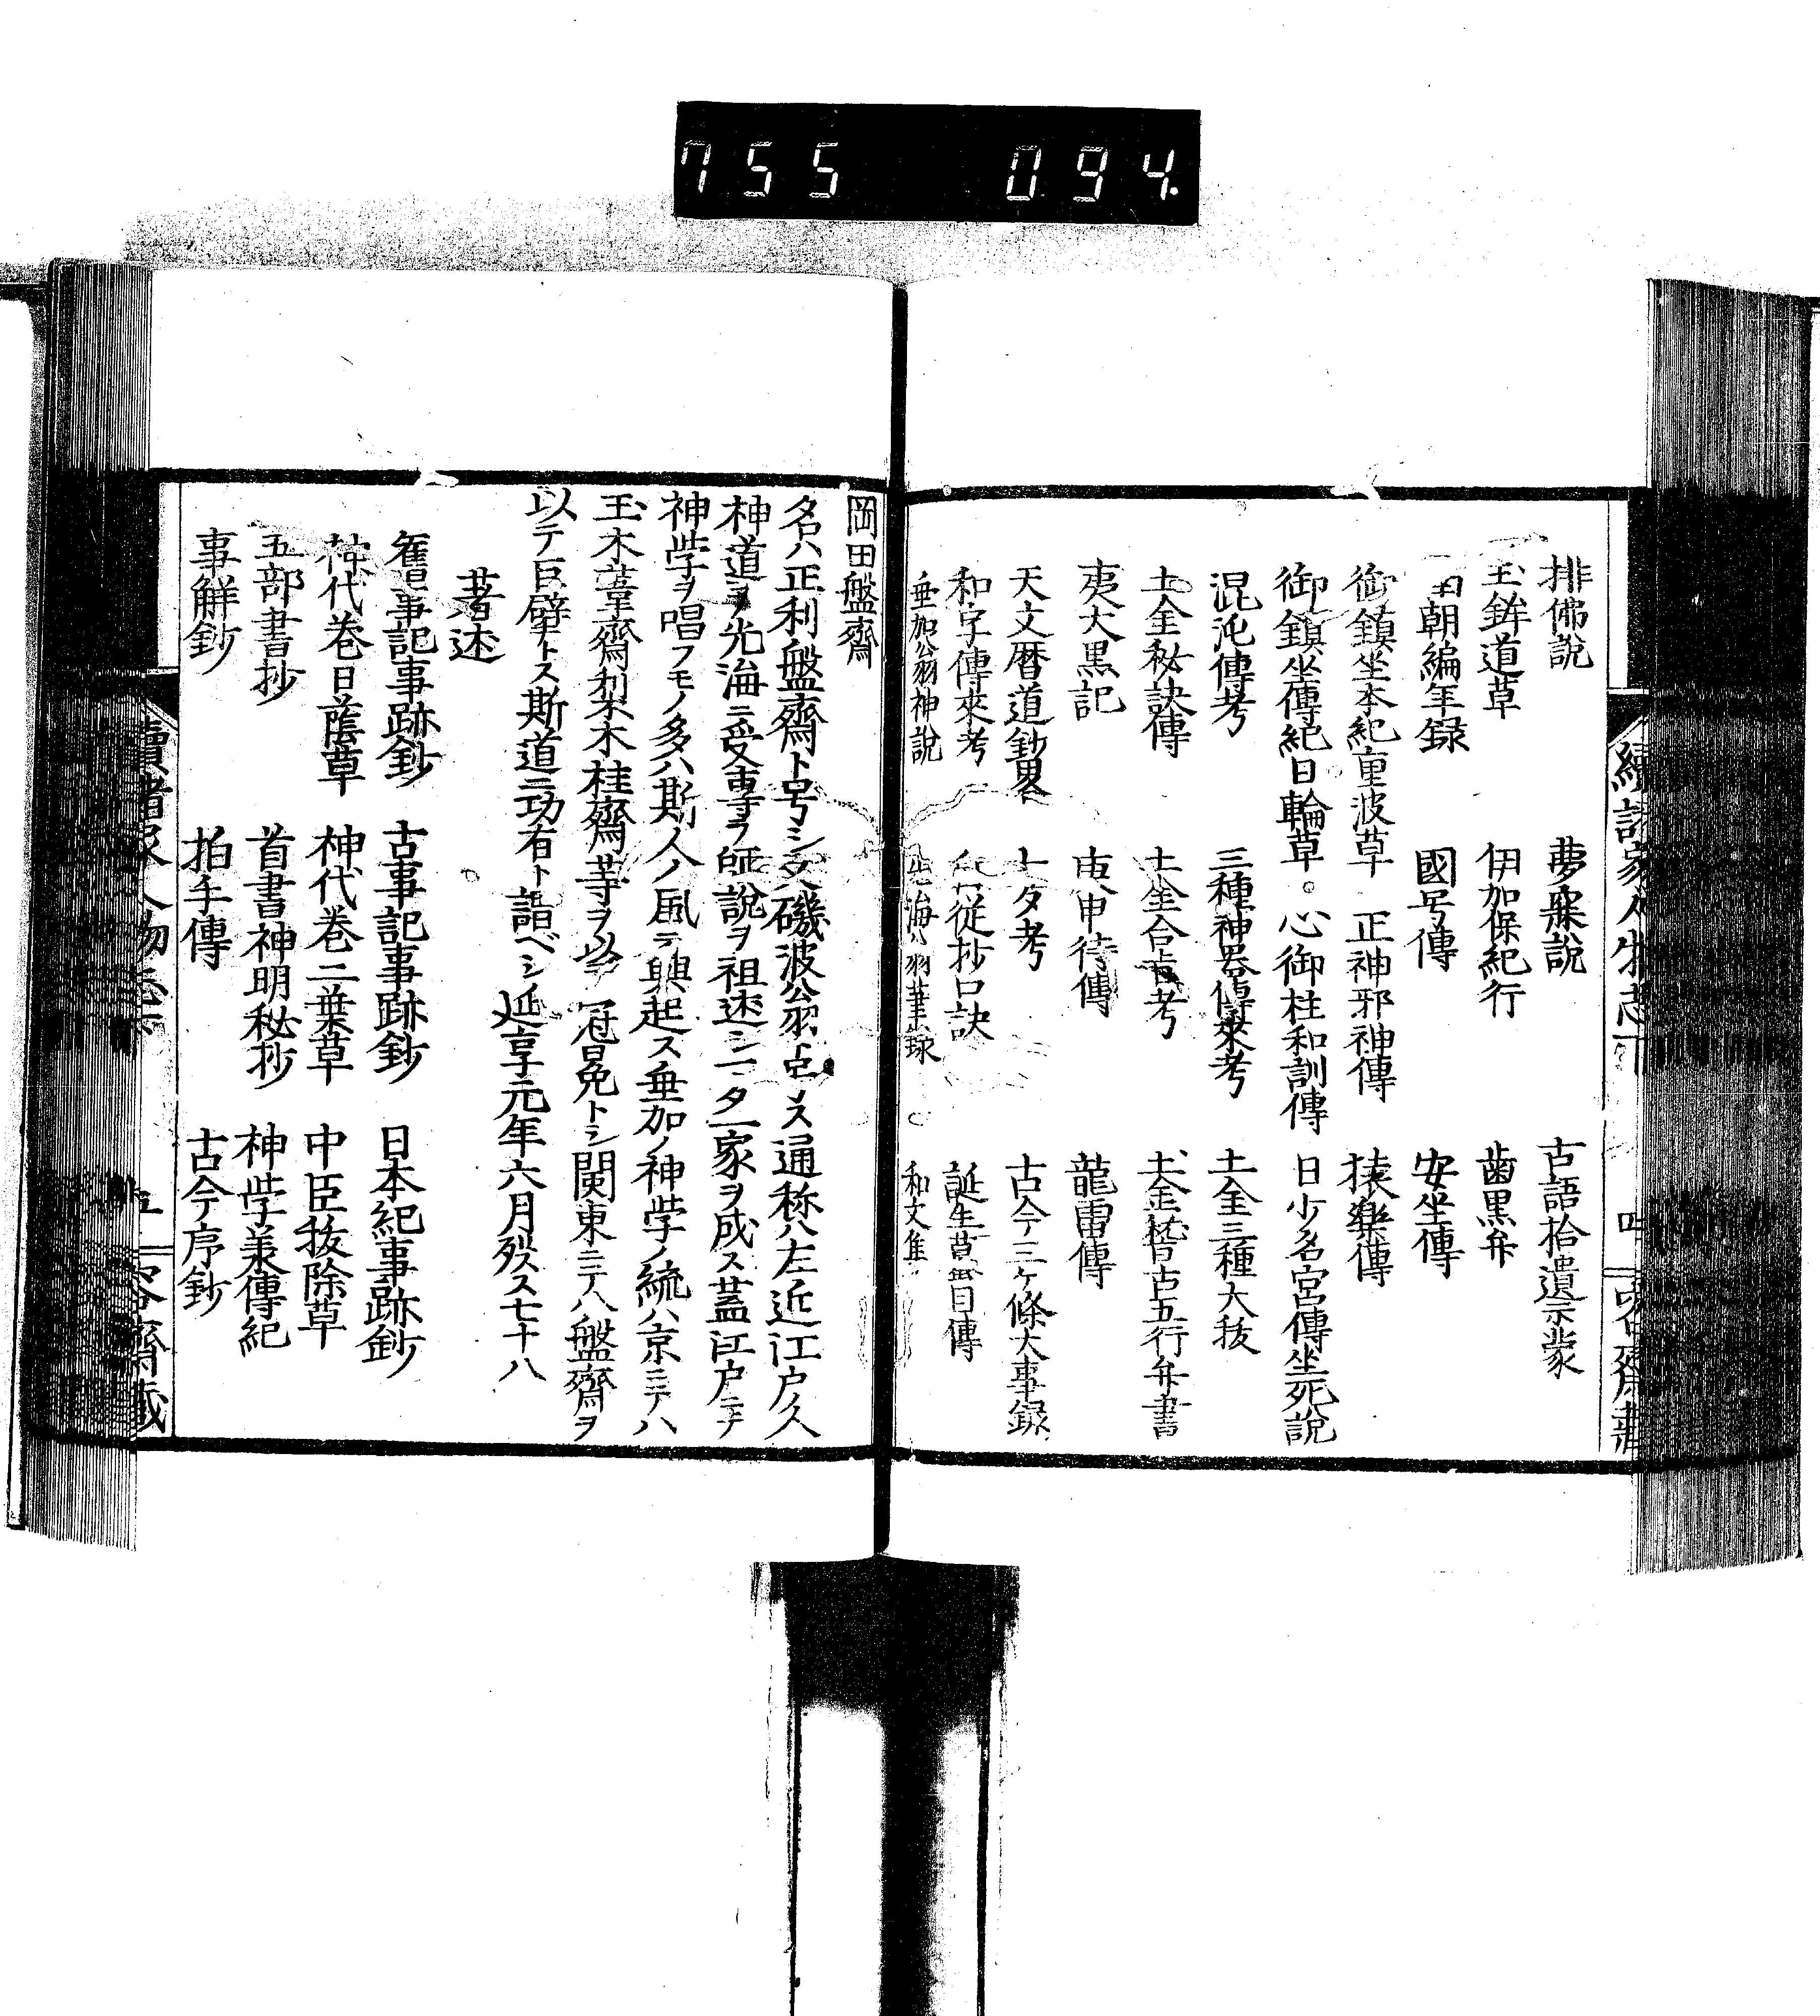 755 094.
排佛說 夢寐說 古語拾遺示蒙
玉鉾道草 伊加保紀行 歯黒弁
朝編年録 國号傳 安坐傳
御鎮坐本紀重波草 正神邪神傳 猿樂傳
御鎮坐傳紀日輪草。心御柱和訓傳 日少名宮傳坐死說
混沌傳考 三種神器傳來考 土金三種大祓
土金秘訣傳 土金合考 土金五行弁書
夷大黒記 庚申待傳 龍雷傳
天文暦道鈔畧 七夕考 古今三ケ條大事録
和字傳來考 從抄口訣 誕生昔日傳
垂加翁神說 光海翁筆球 和文集
續諸家人物志下
四
岡田盤齋
名ハ正利盤齋ト号シ又磯波翁ト号ス通称ハ左近江戸久
神道ヲ光海ニ受専ラ師說ヲ祖述シ一タ一家ヲ成ス蓋江戸ニテ
神学ヲ唱フモノ多ハ斯人ノ風ニテ興起ス垂加ノ神学ノ統ハ京ニテハ
玉木葦齋利木木桂齋等ヲ以テ冠冕トシ関東ニテハ盤齋ヲ
以テ巨擘トス斯道ニ功有ト謂ベシ延享元年六月歿ス七十八
著述
舊事記事跡鈔 古事記事跡鈔 日本紀事跡鈔
神代巻日蔭草 神代巻二葉草 中臣祓除草
五部書抄 首書神明秘抄 神学承傳紀
事解鈔 拍手傳 古今序鈔